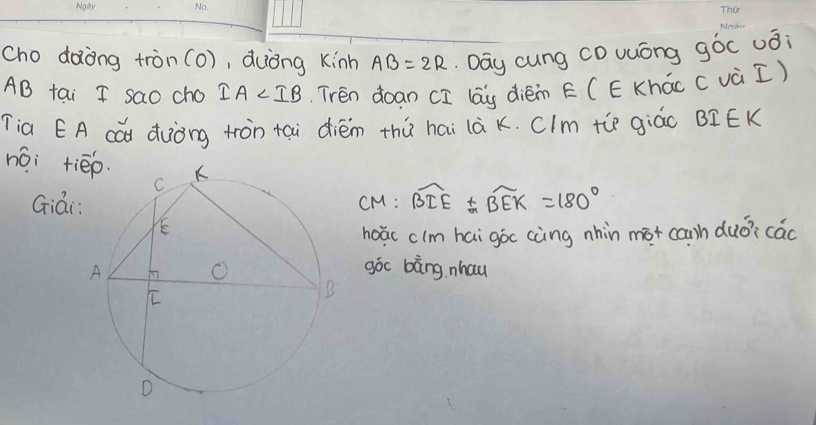 Ngày No.
Thứ
Cho đường tròn (O), đường kính AB = 2R. Dây cung CD vuông góc với
AB tại I sao cho IA < IB. Trên đoạn CI lấy điểm E (E khác C và I)
Tia EA cắt đường tròn tại điểm thứ hai là K. C/m tứ giác BIEK
nội tiếp.
Giải:
CM: BIE + BEK = 180°
hoặc c/m hai góc cùng nhìn một cạnh dưới các
góc bằng nhau
C K
E
A O B
I
D